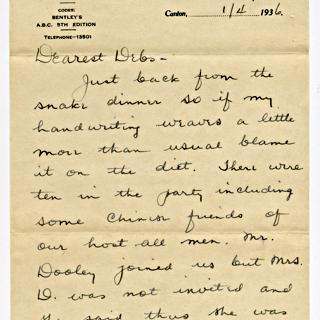 CODES:
BENTLEY'S
A.B.C. 5TH EDITION
TELEPHONE—13501
Canton, 1/4 1936.
Dearest Debs—
Just back from the
snake dinner so if my
handwriting weaves a little
more than usual blame
it on the diet. There were
ten in the party including
some Chinese friends of
our host all men. Mr.
Dooley joined us but Mrs.
D. was not invited and
said thus she was